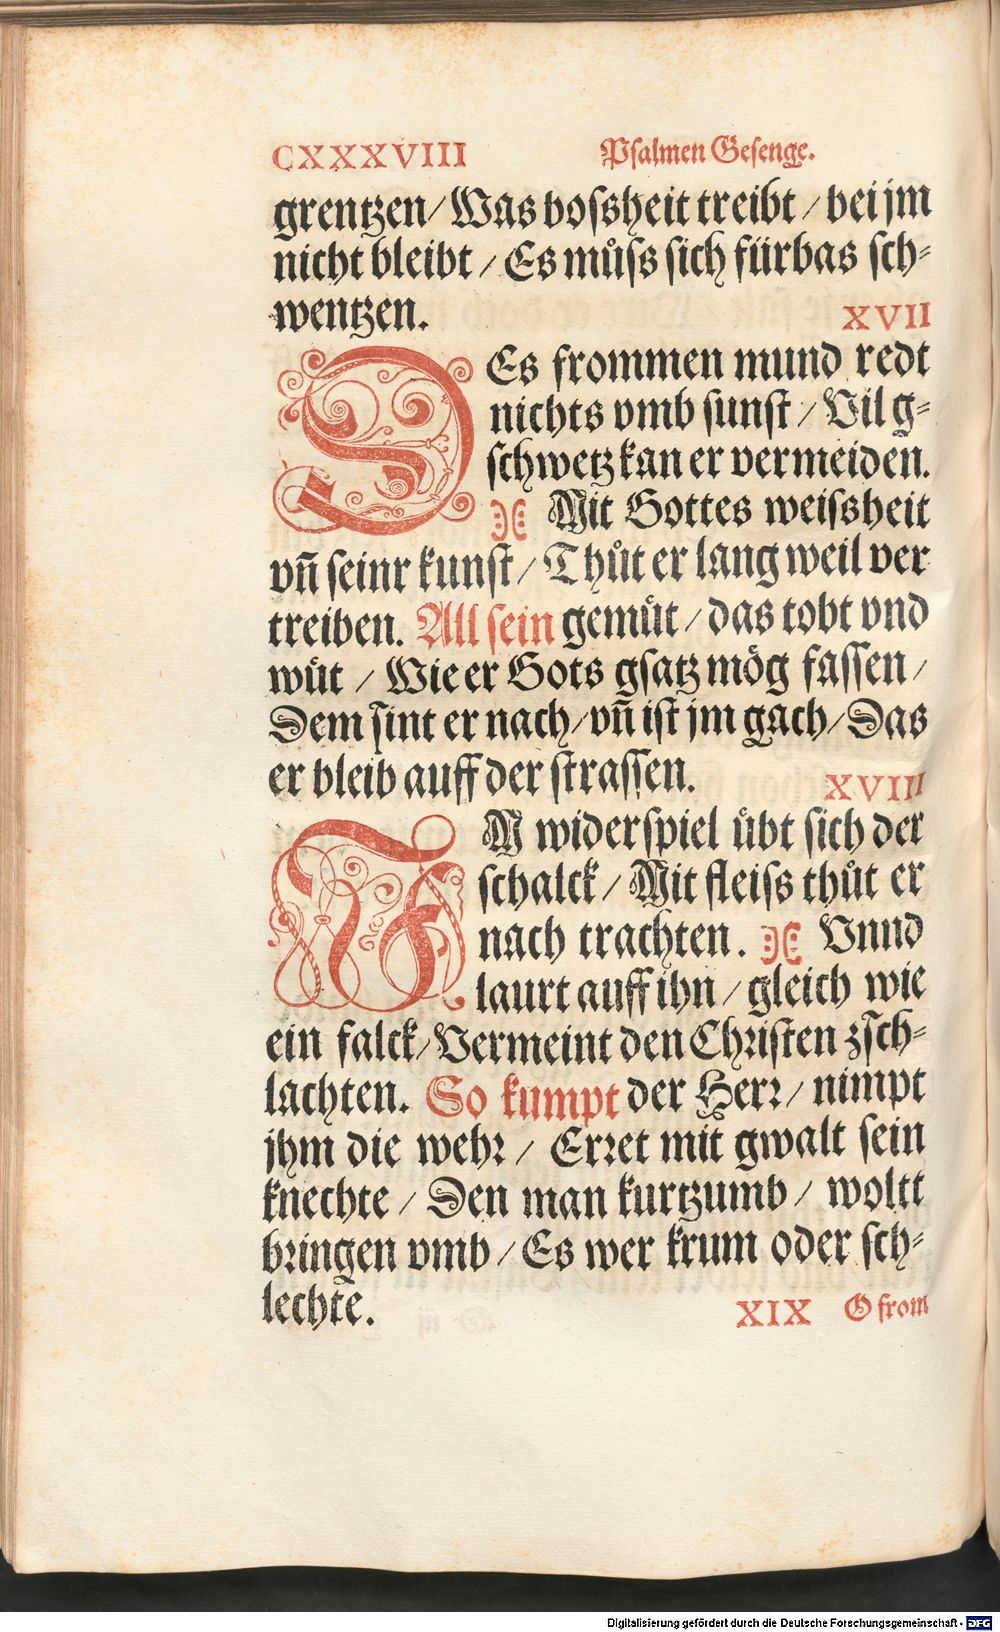 CXXXVIII Psalmen Gesenge.
grentzen/ Was bosſheit treibt/ bei jm
nicht bleibt/ Es muͦſs ſich fürbas ſch⸗
wentzen. XVII
DEs frommen mund redt
nichts vmb ſunſt/ Vil g⸗
ſchwetz kan er vermeiden.
Mit Gottes weiſsheit
vñ ſeinr kunſt/ Thuͦt er lang weil ver
treiben. All ſein gemuͤt/ das tobt vnd
wuͤt/ Wie er Gots gſatz moͤg faſſen/
Dem ſint er nach/ vñ iſt jm gach/ Das
er bleib auff der ſtraſſen. XVIII
IM widerſpiel uͤbt ſich der
ſchalck/ Mit fleiſs thuͦt er
nach trachten. Vnnd
laurt auff ihn/ gleich wie
ein falck/ Vermeint den Chꝛiſten zſch⸗
lachten. So kumpt der Herꝛ/ nimpt
jhm die wehꝛ/ Erꝛet mit gwalt ſein
knechte/ Den man kurtzumb/ woltt
bꝛingen vmb/ Es wer krum oder ſch⸗
lechte. XIX O from
Digitalisierung gefördert durch die Deutsche Forschungsgemeinschaft - DFG